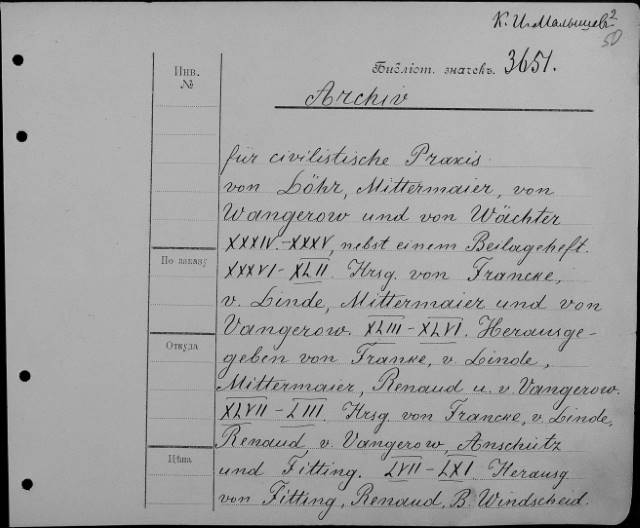 К. И. Малышев 2
50
Инв.
№
Библіот. значекъ. 3651.
Archiv
für civilistische Praxis
von Löhr, Mittermaier, von
Wangerow und von Wächter
XXXIV.-XXXV, nebst einem Beilageheft.
По заказу
XXXVI-XLII. Hrsg. von Francke,
v. Linde, Mittermaier und von
Vangerow. XLIII-XLVI. Herausge-
Откуда
geben von Franke, v. Linde,
Mittermaier, Renaud u. v. Vangerow.
XLVII-LIII. Hrsg. von Francke, v. Linde,
Renaud v. Vangerow, Anschütz
Цѣна
und Fitting. LVII-LXI Herausg
von Fitting, Renaud, B. Windscheid.